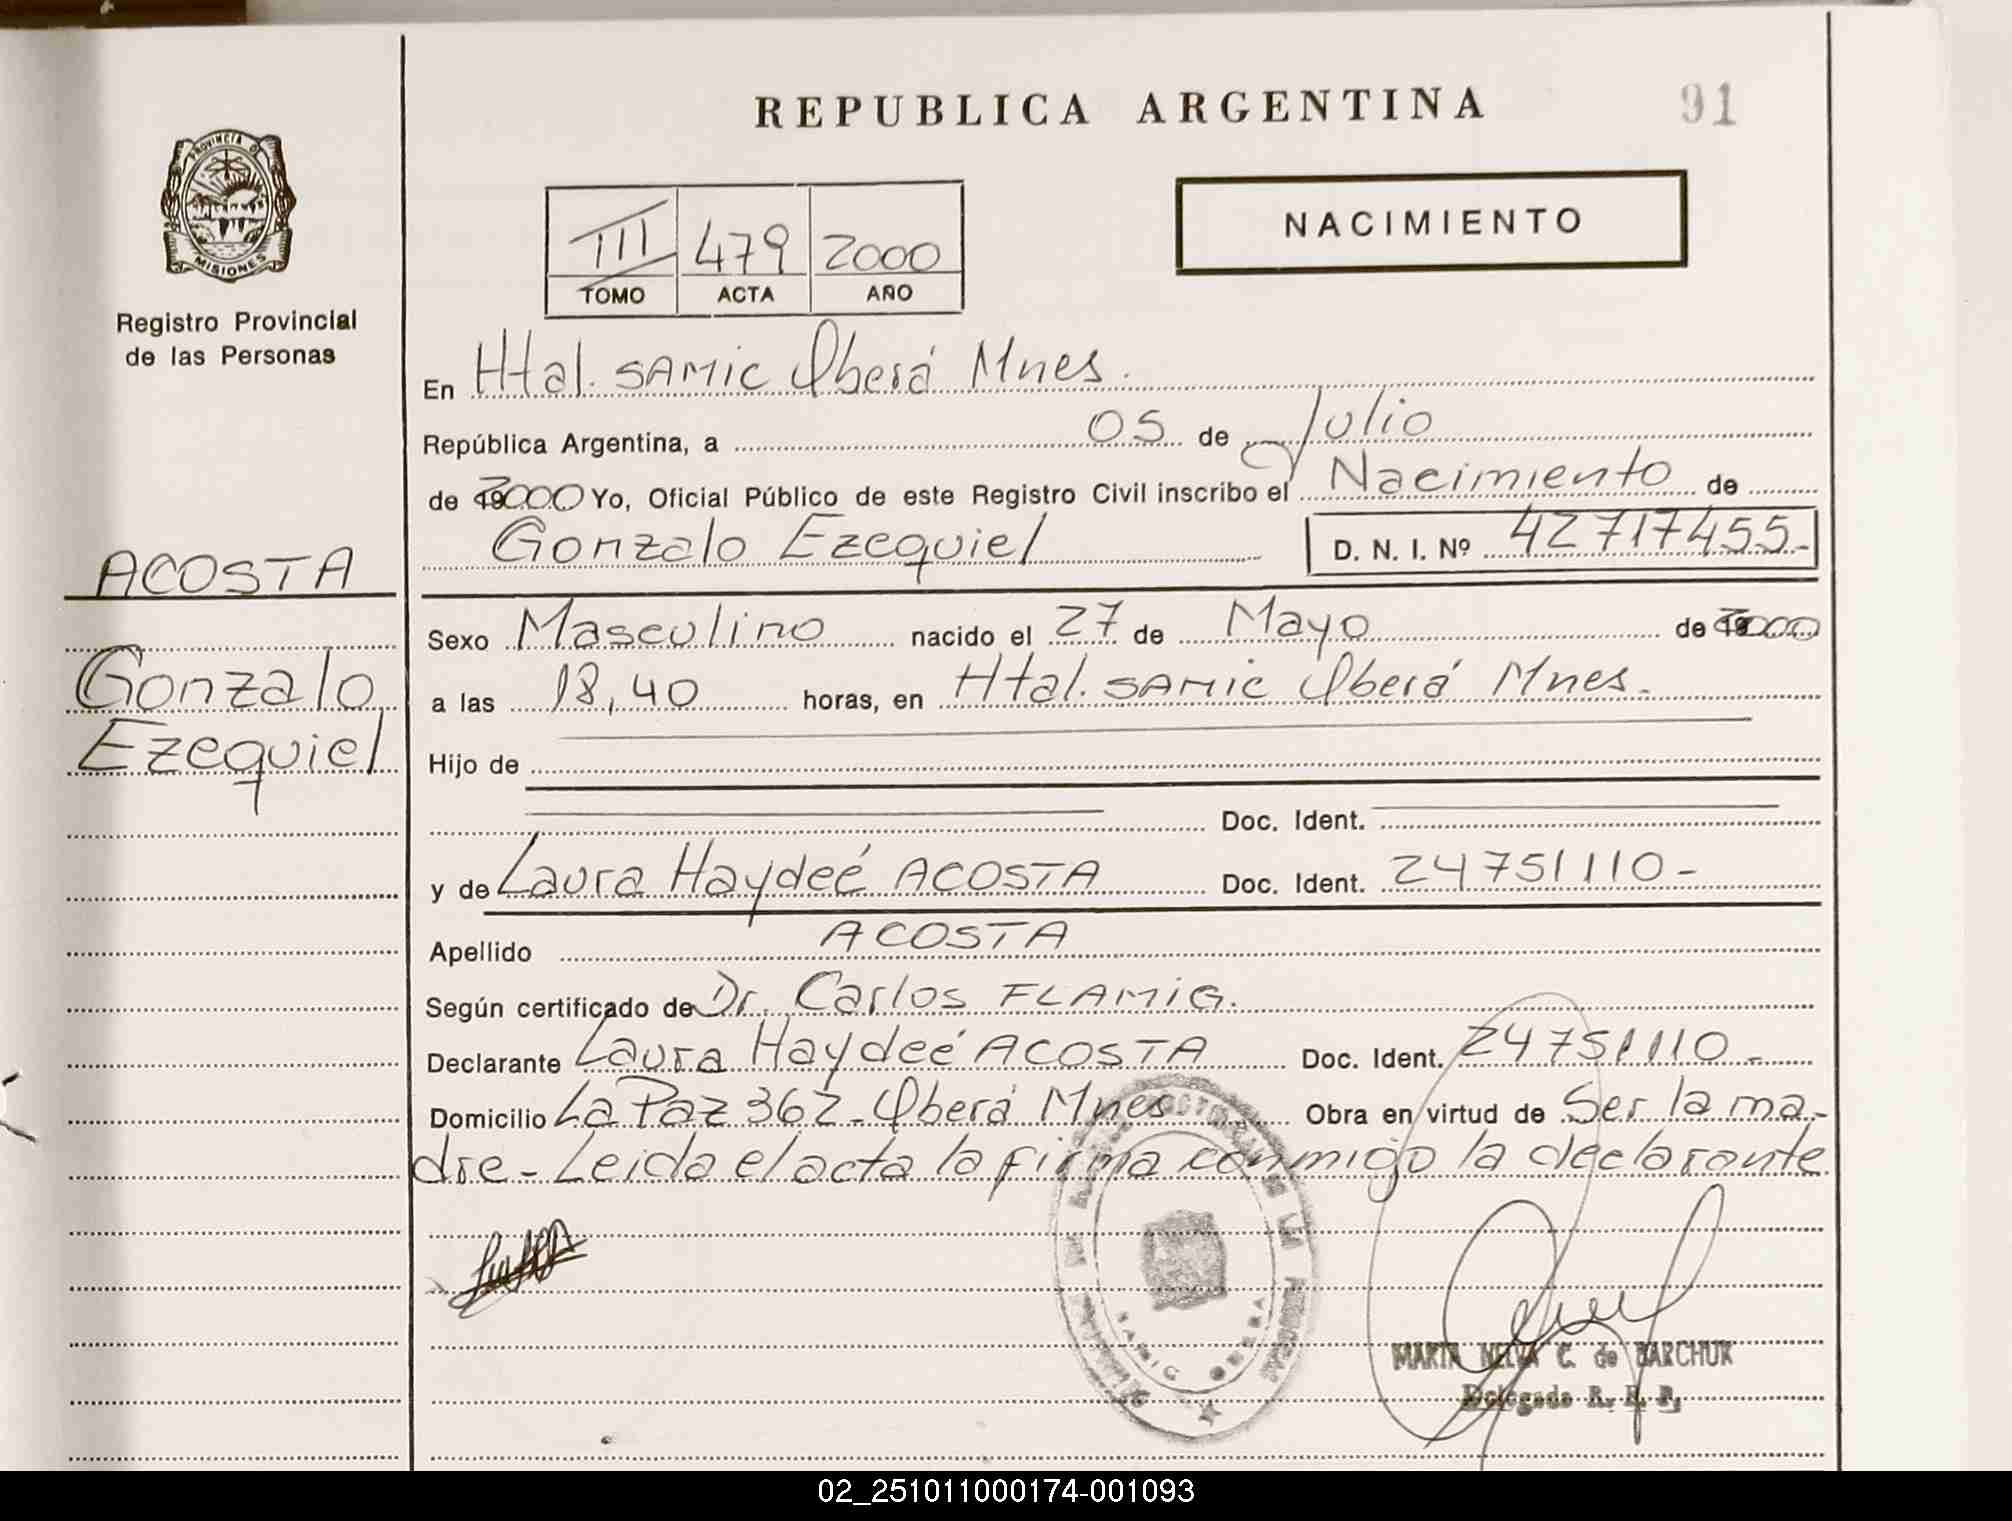 REPUBLICA ARGENTINA
91
PROVINCIA DE
MISIONES
Registro Provincial
de las Personas
NACIMIENTO
III 479 2000
TOMO ACTA AÑO
En Htal. SAMIC Oberá Mnes.
República Argentina, a 05 de Julio
de 2000 Yo, Oficial Público de este Registro Civil inscribo el Nacimiento de
Gonzalo Ezequiel D. N. I. Nº 42717455-
ACOSTA
Gonzalo
Ezequiel
Sexo Masculino nacido el 27 de Mayo de 2000
a las 18,40 horas, en Htal. SAMIC Oberá Mnes.
Hijo de
Doc. Ident.
y de Laura Haydeé ACOSTA Doc. Ident. 24751110-
Apellido ACOSTA
Según certificado de Dr. Carlos FLAMIG.
Declarante Laura Haydeé ACOSTA Doc. Ident. 24751110-
Domicilio La Paz 362- Oberá Mnes Obra en virtud de Ser la ma-
dre- Leida el acta la firma conmigo la declarante
SAMIC OBERA
MARTA NELVA C. de BARCHUK
Delegada R. P. P.
02_251011000174-001093